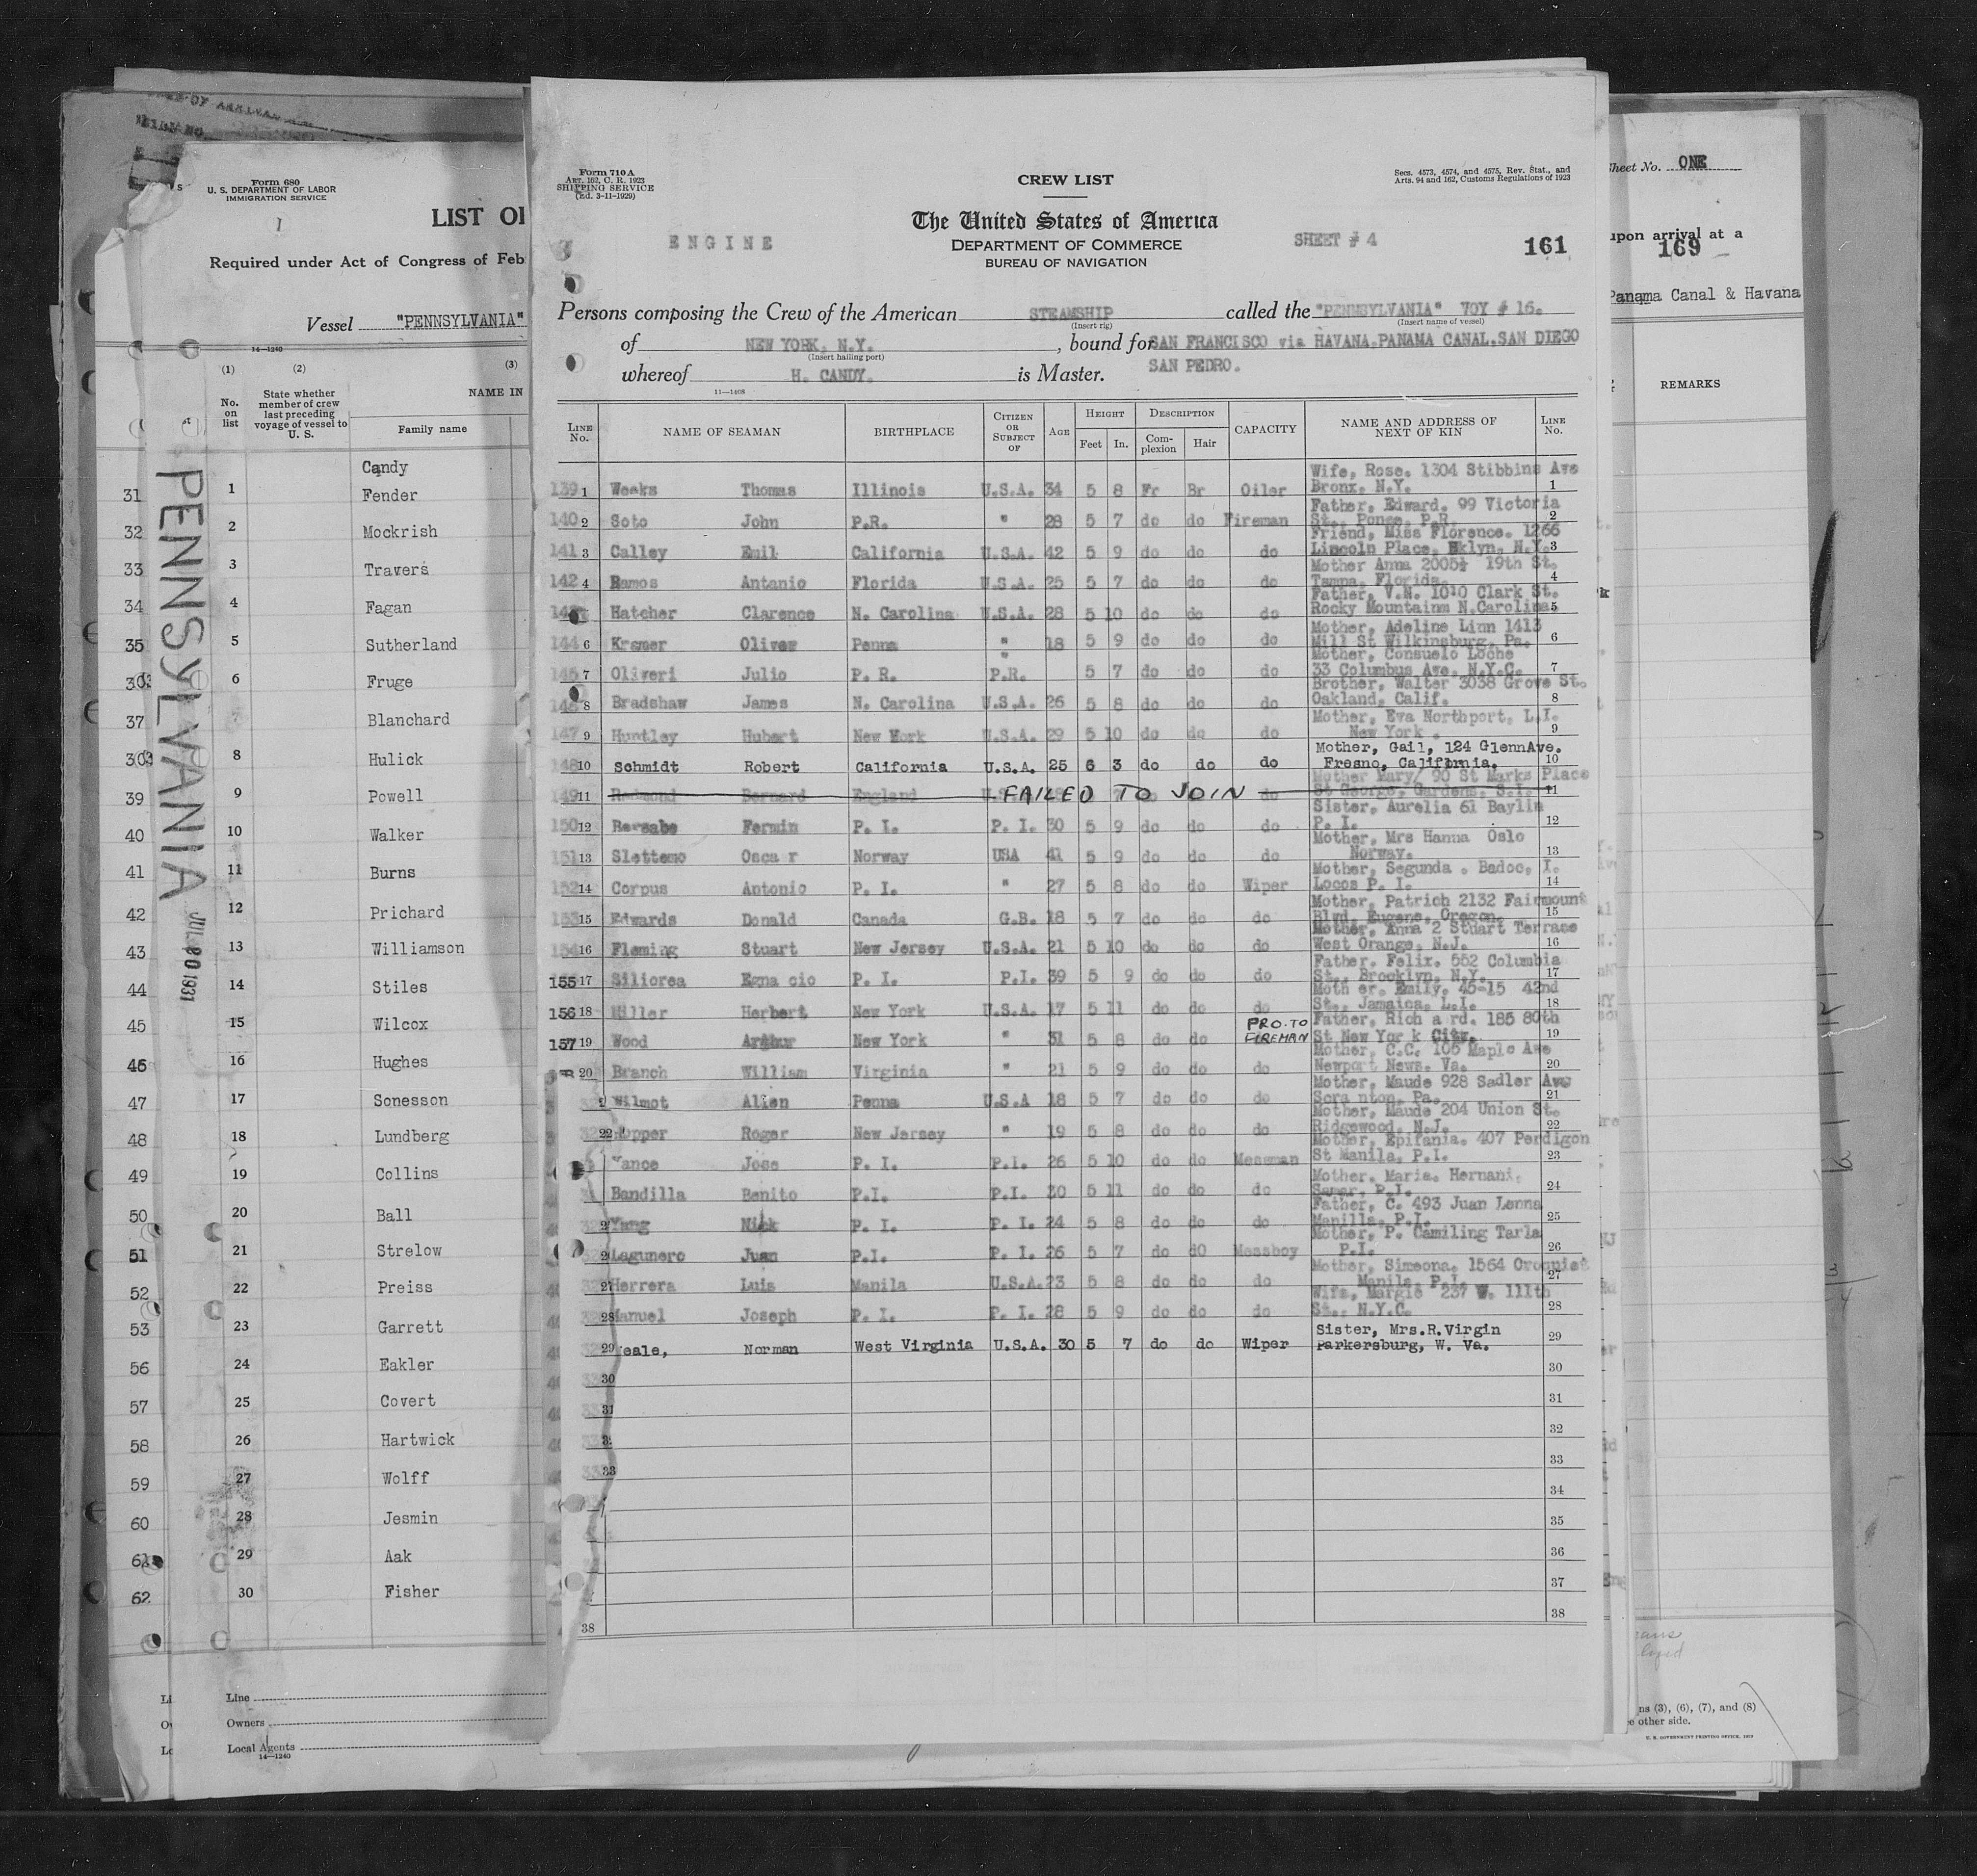 Form 680
U. S. DEPARTMENT OF LABOR
IMMIGRATION SERVICE
1
LIST OF
Required under Act of Congress of Feb
Vessel "PENNSYLVANIA"
14—1240
(1) (2) (3)
No. on list
State whether member of crew last preceding voyage of vessel to U. S.
NAME IN
Family name
Candy
31 1 Fender
32 2 Mockrish
33 3 Travers
34 4 Fagan
35 5 Sutherland
6 Fruge
37 Blanchard
8 Hulick
39 9 Powell
40 10 Walker
41 11 Burns
42 12 Prichard
43 13 Williamson
44 14 Stiles
45 15 Wilcox
46 16 Hughes
47 17 Sonesson
48 18 Lundberg
49 19 Collins
50 20 Ball
51 21 Strelow
52 22 Preiss
53 23 Garrett
56 24 Eakler
57 25 Covert
58 26 Hartwick
59 27 Wolff
60 28 Jesmin
61 29 Aak
62 30 Fisher
Line
Owners
Local Agents
14—1240
PENNSYLVANIA
JUL 20 1931
Form 710 A
ART. 162, C. R. 1923
SHIPPING SERVICE
(Ed. 3-11-1929)
CREW LIST
Secs. 4573, 4574, and 4575, Rev. Stat., and
Arts. 94 and 162, Customs Regulations of 1923
The United States of America
ENGINE
DEPARTMENT OF COMMERCE
SHEET # 4
161
BUREAU OF NAVIGATION
Persons composing the Crew of the American STEAMSHIP called the "PENNSYLVANIA" VOY # 16.
(Insert rig) (Insert name of vessel)
of NEW YORK, N.Y. , bound for SAN FRANCISCO via HAVANA.PANAMA CANAL.SAN DIEGO
(Insert hailing port)
whereof H. CANDY. is Master. SAN PEDRO.
11—1408
LINE No. NAME OF SEAMAN BIRTHPLACE CITIZEN OR SUBJECT OF AGE HEIGHT Feet In. DESCRIPTION Complexion Hair CAPACITY NAME AND ADDRESS OF NEXT OF KIN LINE No.
Wife, Rose. 1304 Stibbins Ave
139 1 Weeks Thomas Illinois U.S.A. 34 5 8 Fr Br Oiler Bronx. N.Y. 1
Father, Edward. 99 Victoria
140 2 Soto John P.R. " 28 5 7 do do Fireman St., Ponce. P.R. 2
Friend, Miss Florence. 1266
141 3 Calley Emil California U.S.A. 42 5 9 do do do Lincoln Place, Bklyn, N.Y. 3
Mother Anna 2005½ 19th St.
142 4 Ramos Antanio Florida U.S.A. 25 5 7 do do do Tampa, Florida. 4
Father, V.N. 1010 Clark St.
Hatcher Clarence N. Carolina U.S.A. 28 5 10 do do do Rocky Mountainm N.Carolina 5
Mother, Adeline Linn 1413
144 6 Kramer Oliver Penna " 18 5 9 do do do Mill St Wilkinsburg, Pa. 6
Mother, Consuelo Loche
145 7 Oliveri Julio P. R. " P.R. 5 7 do do do 33 Columbus Ave. N.Y.C. 7
Brother, Walter 3038 Grove St.
8 Bradshaw James N. Carolina U.S.A. 26 5 8 do do do Oakland, Calif. 8
Mother, Eva Northport, L.I.
147 9 Huntley Hubart New York U.S.A. 29 5 10 do do do New York . 9
Mother, Gail, 124 GlennAve.
148 10 Schmidt Robert California U.S.A. 25 6 3 do do do Fresno, California. 10
Mother Mary/ 90 St Marks Place
149 11 Redmond Bernard England FAILED TO JOIN do St George, Gardens, S.I. 11
Sister, Aurelia 61 Baylin
150 12 Bersabe Fermin P. I. P. I. 30 5 9 do do do P. I. 12
Mother, Mrs Hanna Oslo
151 13 Slettemo Osca r Norway USA 41 5 9 do do do Norway. 13
Mother, Segunda . Badoc, I.
152 14 Corpus Antonio P. I. " 27 5 8 do do Wiper Locos P. I. 14
Mother, Patrich 2132 Fairmount
153 15 Edwards Donald Canada G.B. 18 5 7 do do do Blvd, Eugene, Oregon. 15
Mother, Anna 2 Stuart Terrace
154 16 Fleming Stuart New Jersey U.S.A. 21 5 10 do do do West Orange, N.J. 16
Father. Felix. 552 Columbia
155 17 Siliorea Egna cio P. I. P.I. 39 5 9 do do do St., Brooklyn, N.Y. 17
Moth er. Emily, 45-15 42nd
156 18 Miller Herbert New York U.S.A. 17 5 11 do do do St., Jamaica, L.I. 18
PRO. TO Father, Rich a rd. 185 80th
157 19 Wood Arthur New York " 31 5 8 do do FIREMAN St New Yor k City. 19
Mother, C.C. 105 Maple Ave
20 Branch William Virginia " 21 5 9 do do do Newport News. Va. 20
Mother, Maude 928 Sadler Ave
Wilmot Allen Penna U.S.A 18 5 7 do do do Scra nton, Pa. 21
Mother, Maude 204 Union St.
22 Roger New Jersey " 19 5 8 do do do Ridgewood, N.J. 22
Mother, Epifania. 407 Perdigon
Yance Jose P. I. P.I. 26 5 10 do do Messman St Manila, P.I. 23
Mother. Maria. Hernani.
Bandilla Benito P.I. P.I. 30 5 11 do do do Samar, P.I. 24
Father, C. 493 Juan Lonna
Yang Nick P. I. P. I. 24 5 8 do do do Manilla, P.I. 25
Mother, P. Camiling Tarla
Lagunero Juan P.I. P. I. 26 5 7 do dO Messboy P.I. 26
Mother, Simeona. 1564 Oroquist
27 Herrera Luis Manila U.S.A. 23 5 8 do do do Manila, P.I. 27
Wife, Margie 237 W. 111th
28 Manuel Joseph P. I. P. I. 28 5 9 do do do St., N.Y.C. 28
Sister, Mrs.R.Virgin
29 eale, Norman West Virginia U.S.A. 30 5 7 do do Wiper Parkersburg, W. Va. 29
30 30
31 31
32
33 33
34
35
36
37
38 38
Sheet No. ONE
upon arrival at a
169
Panama Canal & Havana
REMARKS
ns (3), (6), (7), and (8)
e other side.
U. S. GOVERNMENT PRINTING OFFICE